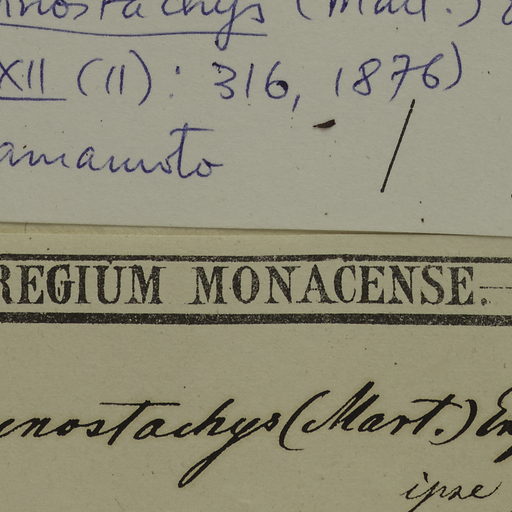 nostachys (Mart.)
XII (II): 316, 1876)
amamoto
REGIUM MONACENSE.
nostachys (Mart.) Eng
ipse